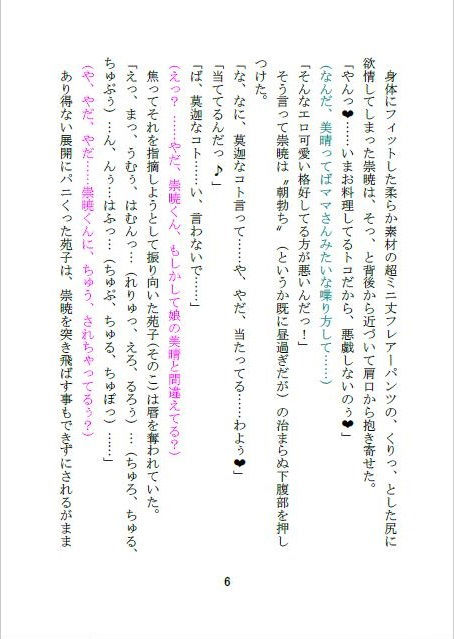 身体にフィットした柔らか素材の超ミニ丈フレアーパンツの、くりっ、とした尻に
欲情してしまった崇暁は、そっ、と背後から近づいて肩口から抱き寄せた。
「やんっ❤……いまお料理してるトコだから、悪戯しないのぅ❤」
(なんだ、美晴ってばママさんみたいな喋り方して……)
「そんなエロ可愛い格好してる方が悪いんだっ！」
そう言って崇暁は〝朝勃ち〟（というか既に昼過ぎだが）の治まらぬ下腹部を押し
つけた。
「な、なに、莫迦なコト言って……や、やだ、当たってる……わよぅ❤」
「当ててるんだっ♪」
「ば、莫迦なコト……い、言わないで……」
(えっ？ ……やだ、崇暁くん、もしかして娘の美晴と間違えてる？)
焦ってそれを指摘しようとして振り向いた苑子(そのこ)は唇を奪われていた。
「えっ、まっ、うむぅ、はむんっ…(れりゅっ、えろ、るろぅ）…(ちゅろ、ちゅる、
ちゅぷぅ）…ん、んぅ…はふっ…（ちゅぷ、ちゅる、ちゅぽっ）……」
(や、やだ、やだ……崇暁くんに、ちゅう、されちゃってるぅ？)
あり得ない展開にパニくった苑子は、崇暁を突き飛ばす事もできずにされるがまま
6